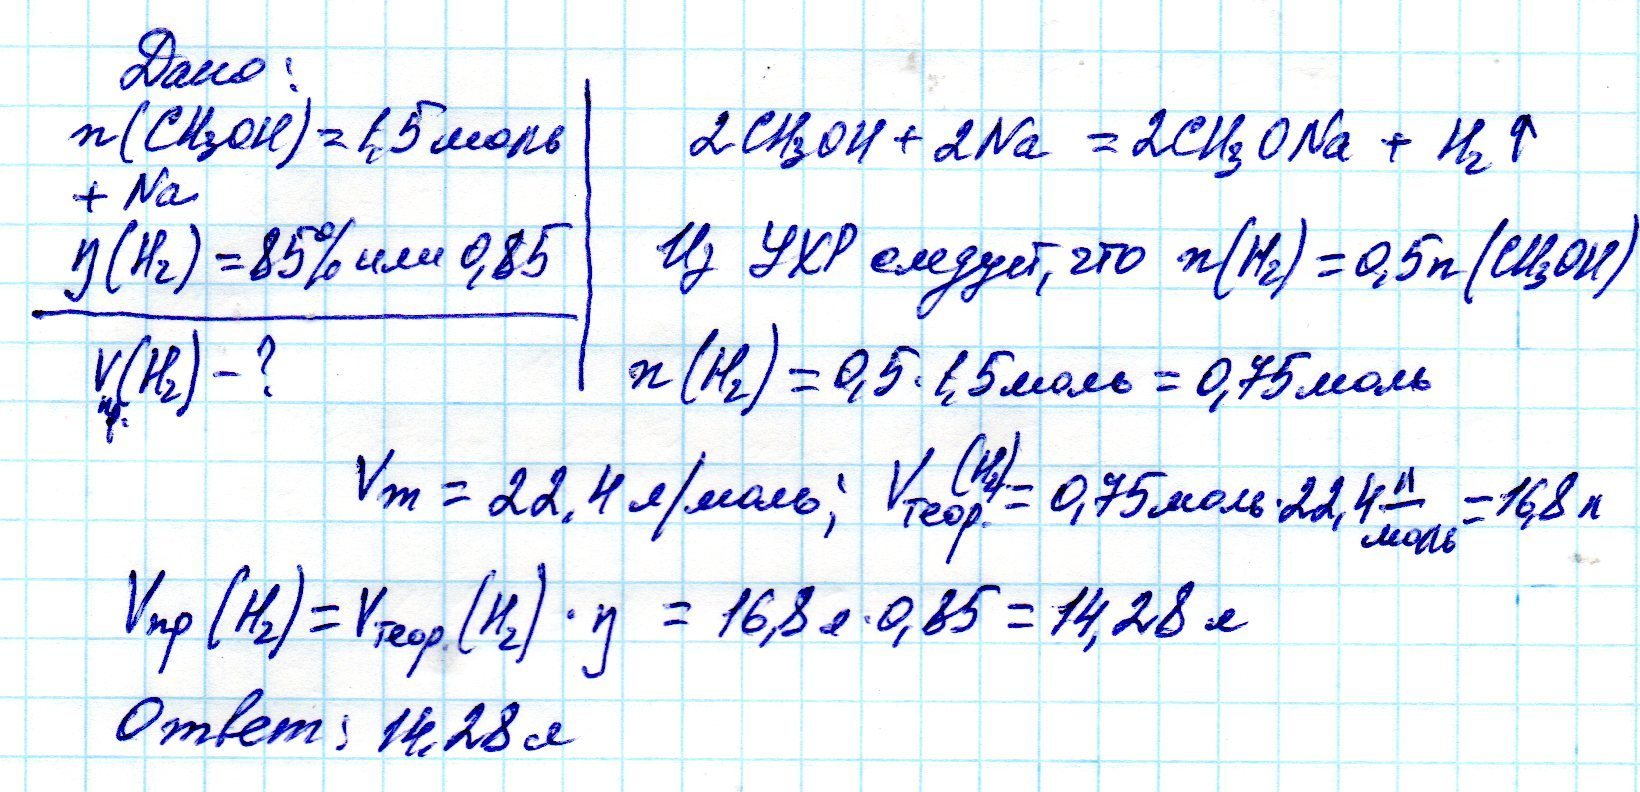 Дано:
n(CH₃OH) = 1,5 моль
+ Na
η(H₂) = 85% или 0,85
Vпр.(H₂) - ?
2CH₃OH + 2Na = 2CH₃ONa + H₂↑
Из УХР следует, что n(H₂) = 0,5n(CH₃OH)
n(H₂) = 0,5·1,5 моль = 0,75 моль
Vm = 22,4 л/моль; Vтеор.(H₂) = 0,75 моль·22,4 л/моль = 16,8 л
Vпр(H₂) = Vтеор.(H₂)·η = 16,8 л·0,85 = 14,28 л
Ответ: 14,28 л